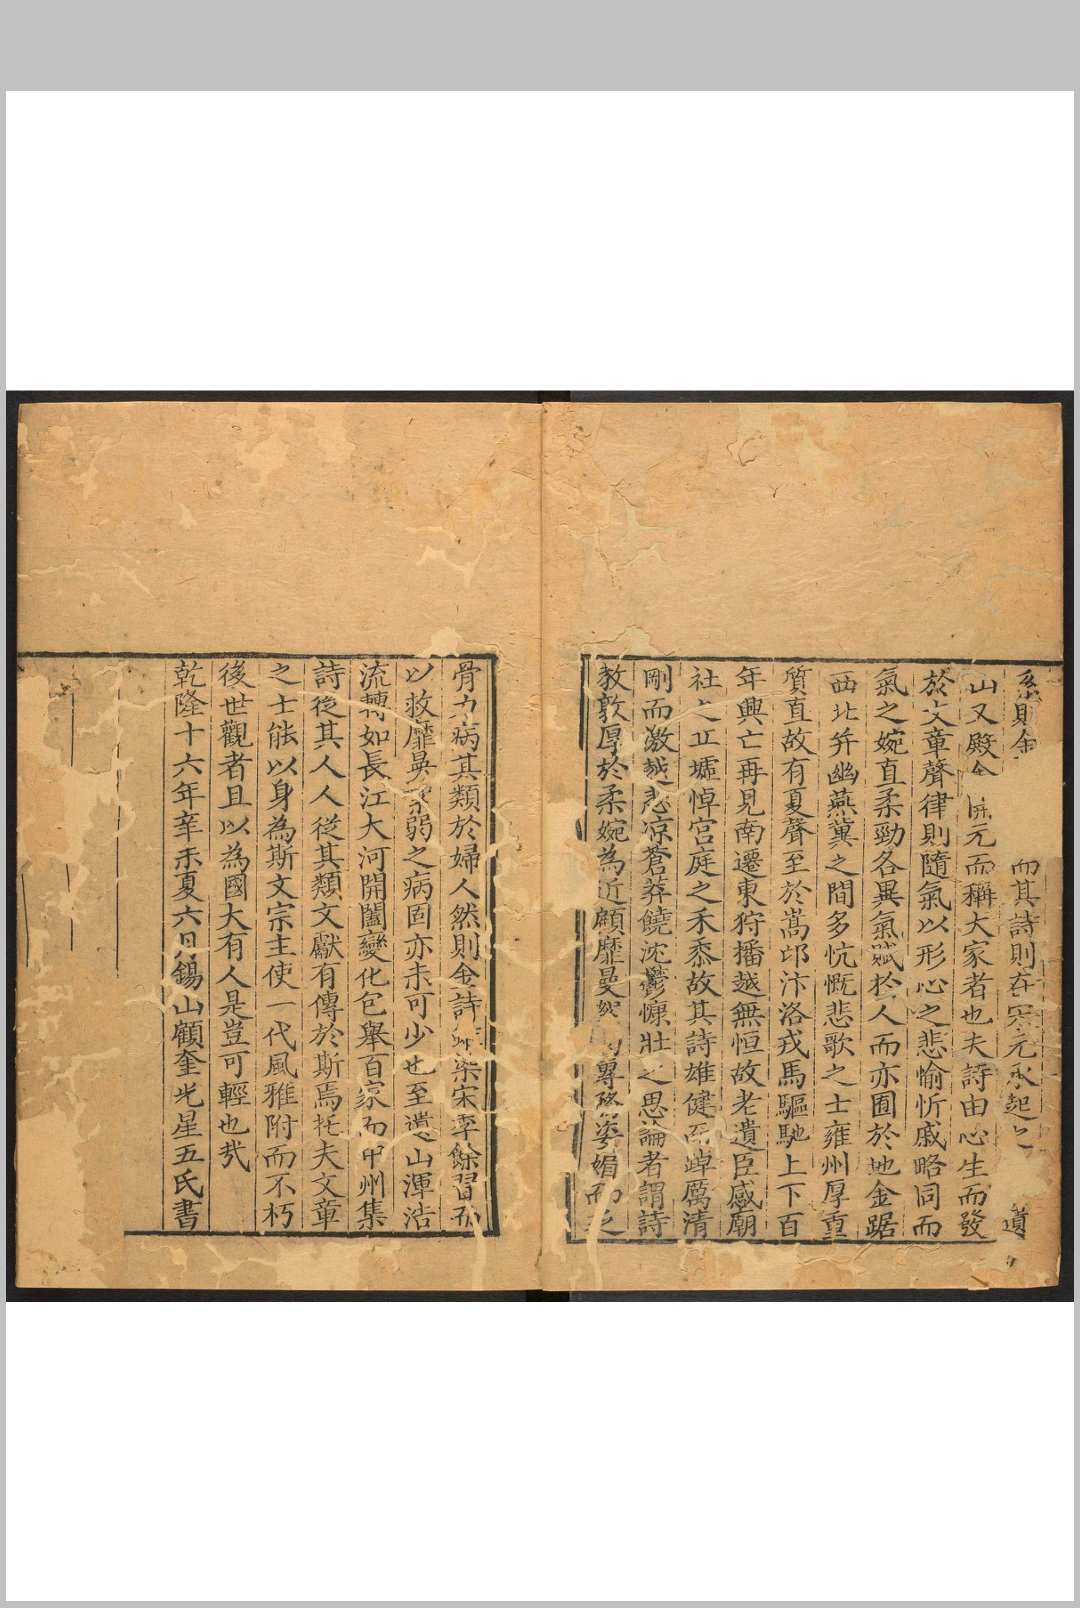 系則金而其詩則在宋元承起之遺
山又殿金開元而稱大家者也夫詩由心生而發
於文章聲律則隨氣以形心之悲愉忻戚略同而
氣之婉直柔勁各異氣賦扵人而亦囿於地金踞
西北并幽燕冀之間多忼慨悲歌之士雍州厚重
質直故有夏聲至於嵩邙汴洛戎馬驅馳上下百
年興亡再見南遷東狩播越無恒故老遺臣感廟
社之丘墟悼宫庭之禾黍故其詩雄健而踔厲清
剛而激越悲凉蒼莽饒沈鬱慷壯之思論者謂詩
教敦厚於柔婉為近顧靡曼專務姿媚而乏
骨力病其類於婦人然則金詩染宋季餘習而
以救靡曼柔弱之病固亦未可少也至遺山渾浩
流轉如長江大河開闔變化包舉百家而中州集
詩從其人人從其類文獻有傳於斯焉托夫文章
之士能以身為斯文宗主使一代風雅附而不朽
後世觀者且以為國大有人是豈可輕也哉
乾隆十六年辛未夏六月錫山顧奎光星五氏書